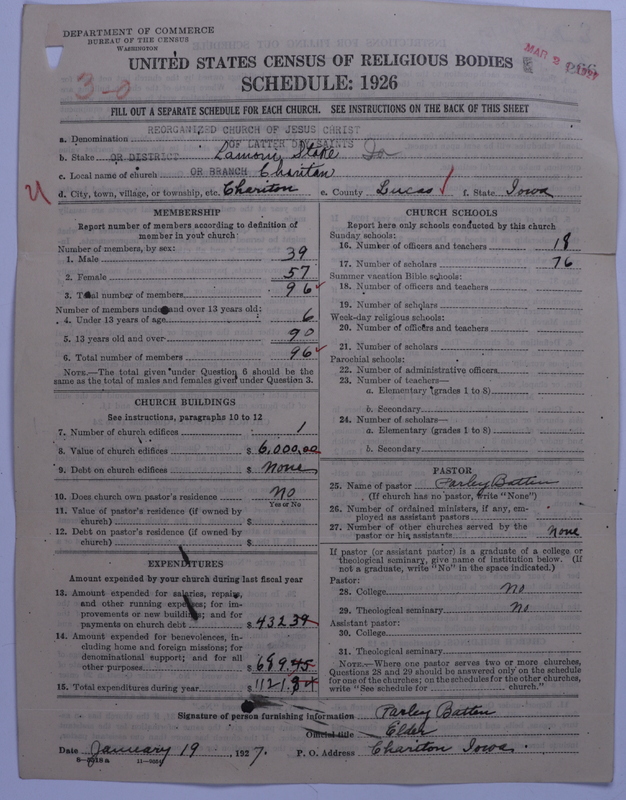 DEPARTMENT OF COMMERCE
BUREAU OF THE CENSUS
WASHINGTON
UNITED STATES CENSUS OF RELIGIOUS BODIES
SCHEDULE: 1926
3-0
FILL OUT A SEPARATE SCHEDULE FOR EACH CHURCH. SEE INSTRUCTIONS ON THE BACK OF THIS SHEET
REORGANIZED CHURCH OF JESUS CHRIST
a. Denomination
OF LATTER DAY SAINTS
b. Stake OR DISTRICT Lamoni Stake Ia
c. Local name of church OR BRANCH Chariton
d. City, town, village, or township, etc. Chariton e. County Lucas f. State Iowa
MEMBERSHIP
Report number of members according to definition of member in your church
Number of members, by sex:
1. Male 39
2. Female 57
3. Total number of members 96
Number of members under and over 13 years old:
4. Under 13 years of age 6
5. 13 years old and over 90
6. Total number of members 96
NOTE.—The total given under Question 6 should be the
same as the total of males and females given under Question 3.
CHURCH BUILDINGS
See instructions, paragraphs 10 to 12
7. Number of church edifices 1
8. Value of church edifices $ 6,000.00
9. Debt on church edifices $ None
10. Does church own pastor's residence No
Yes or No
11. Value of pastor's residence (if owned by
church) $
12. Debt on pastor's residence (if owned by
church) $
EXPENDITURES
Amount expended by your church during last fiscal year
13. Amount expended for salaries, repairs,
and other running expenses; for im-
provements or new buildings; and for
payments on church debt $ 432.39
14. Amount expended for benevolences, in-
cluding home and foreign missions; for
denominational support; and for all
other purposes $ 689.45
15. Total expenditures during year $ 1121.84
CHURCH SCHOOLS
Report here only schools conducted by this church
Sunday schools:
16. Number of officers and teachers 18
17. Number of scholars 76
Summer vacation Bible schools:
18. Number of officers and teachers
19. Number of scholars
Week-day religious schools:
20. Number of officers and teachers
21. Number of scholars
Parochial schools:
22. Number of administrative officers
23. Number of teachers—
a. Elementary (grades 1 to 8)
b. Secondary
24. Number of scholars—
a. Elementary (grades 1 to 8)
b. Secondary
PASTOR
25. Name of pastor Parley Batten
(If church has no pastor, write "None")
26. Number of ordained ministers, if any, em-
ployed as assistant pastors
27. Number of other churches served by the
pastor or his assistants None
If pastor (or assistant pastor) is a graduate of a college or
theological seminary, give name of institution below. (If
not a graduate, write "No" in the space indicated.)
Pastor:
28. College No
29. Theological seminary No
Assistant pastor:
30. College
31. Theological seminary
NOTE.—Where one pastor serves two or more churches,
Questions 28 and 29 should be answered only on the schedule
for one of the churches; on the schedules for the other churches,
write "See schedule for church."
Signature of person furnishing information Parley Batten
Official title Elder
Date January 19 1927. P. O. Address Chariton Iowa.